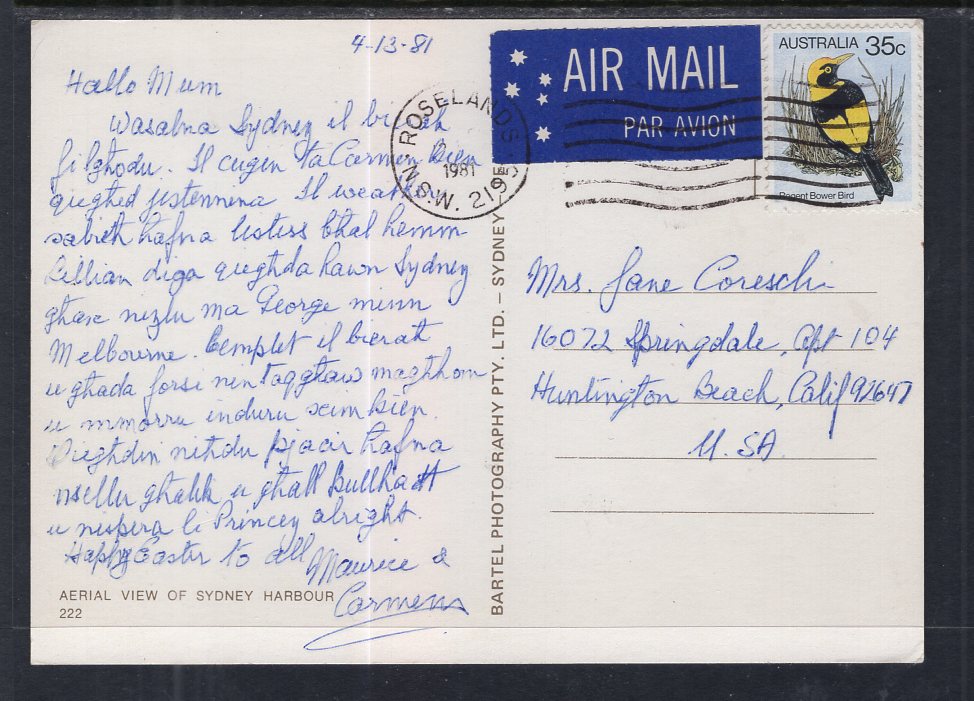 4-13-81
Hallo Mum
Wasalna Sydney il bierah
fil ghodu. Il cugin ta Carmen kien
qieghed jistennena Il weather
sabieh hafna listess bhal hemm
Lillian diga qieghda hawn Sydney
ghax nizlu ma George minn
Melbourne. Cemplet il bierah
u ghada forsi nin taqghaw maghhom
u mmorru induru xeim kien.
Qieghdin niehdu pjacir hafna
nsellu ghalik u ghall kullhadd
u nispera li Princey alright.
Haphy Easter to all Maurice &
Carmen
AERIAL VIEW OF SYDNEY HARBOUR
222
BARTEL PHOTOGRAPHY PTY. LTD. – SYDNEY –
ROSELANDS
1981
N.S.W. 2196
AIR MAIL
PAR AVION
AUSTRALIA 35c
Regent Bower Bird
Mrs. Jane Coreschi
16072 Springdale, Apt 104
Huntington Beach, Calif 92647
U.SA.